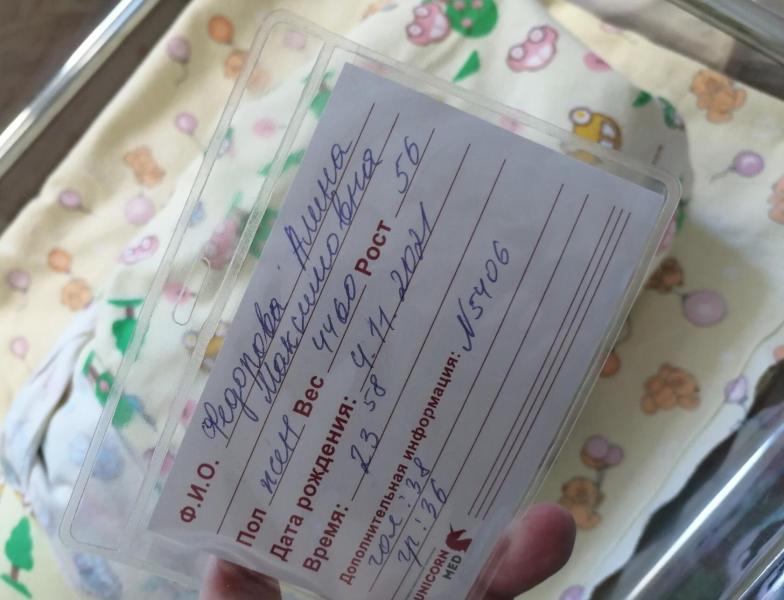 Ф.И.О. Федорова Алина
Максимовна
Пол жен Вес 4460 Рост 56
Дата рождения: 4.11.2021
Время: 23 58
Дополнительная информация: N5406
гол: 38
гр: 36
UNICORN
MED